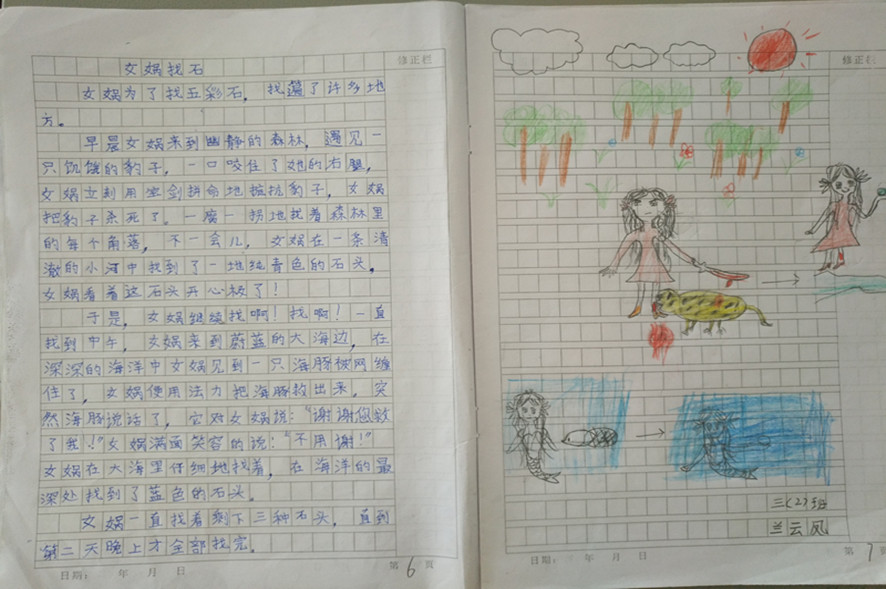 女娲找石
女娲为了找五彩石，找遍了许多地
方。
早晨女娲来到幽静的森林，遇见一
只饥饿的豹子，一口咬住了她的右腿，
女娲立刻用宝剑拼命地抵抗豹子，女娲
把豹子杀死了。一瘸一拐地找着森林里
的每个角落，不一会儿，女娲在一条清
澈的小河中找到了一地纯青色的石头。
女娲看着这石头开心极了！
于是，女娲继续找啊！找啊！一直
找到中午，女娲来到蔚蓝的大海边，在
深深的海洋中女娲见到一只海豚被网缠
住了，女娲便用法力把海豚救出来，突
然海豚说话了，它对女娲说：“谢谢您救
了我！”女娲满面笑容的说：“不用谢！”
女娲在大海里仔细地找着，在海洋的最
深处找到了蓝色的石头。
女娲一直找着剩下三种石头，直到
第二天晚上才全部找完。
修正栏
日期： 年 月 日
第 6 页
修正栏
三（2）班
兰云凤
日期： 年 月 日
第 7 页